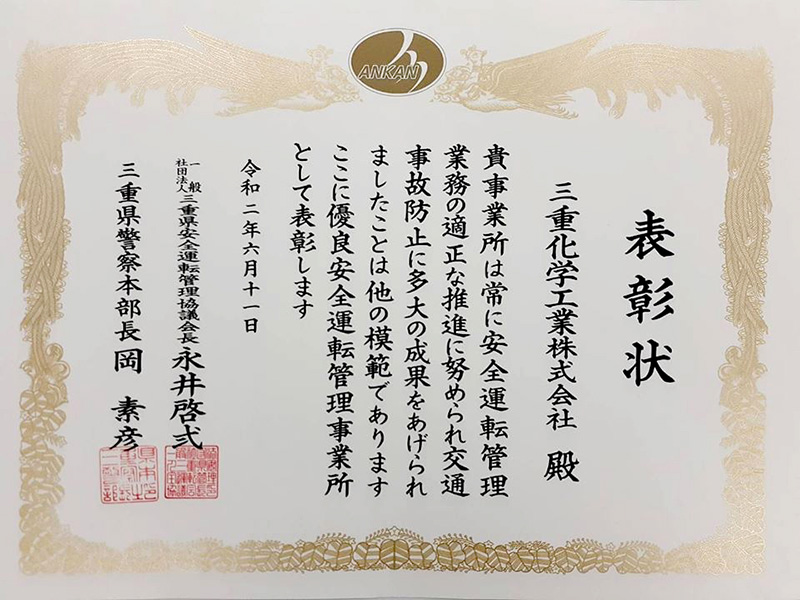 ANKAN
表彰状
三重化学工業株式会社 殿
貴事業所は常に安全運転管理
業務の適正な推進に努められ交通
事故防止に多大の成果をあげられ
ましたことは他の模範であります
ここに優良安全運転管理事業所
として表彰します
令和二年六月十一日
一般社団法人三重県安全運転管理協議会長 永井啓弐
三重県警察本部長 岡 素彦